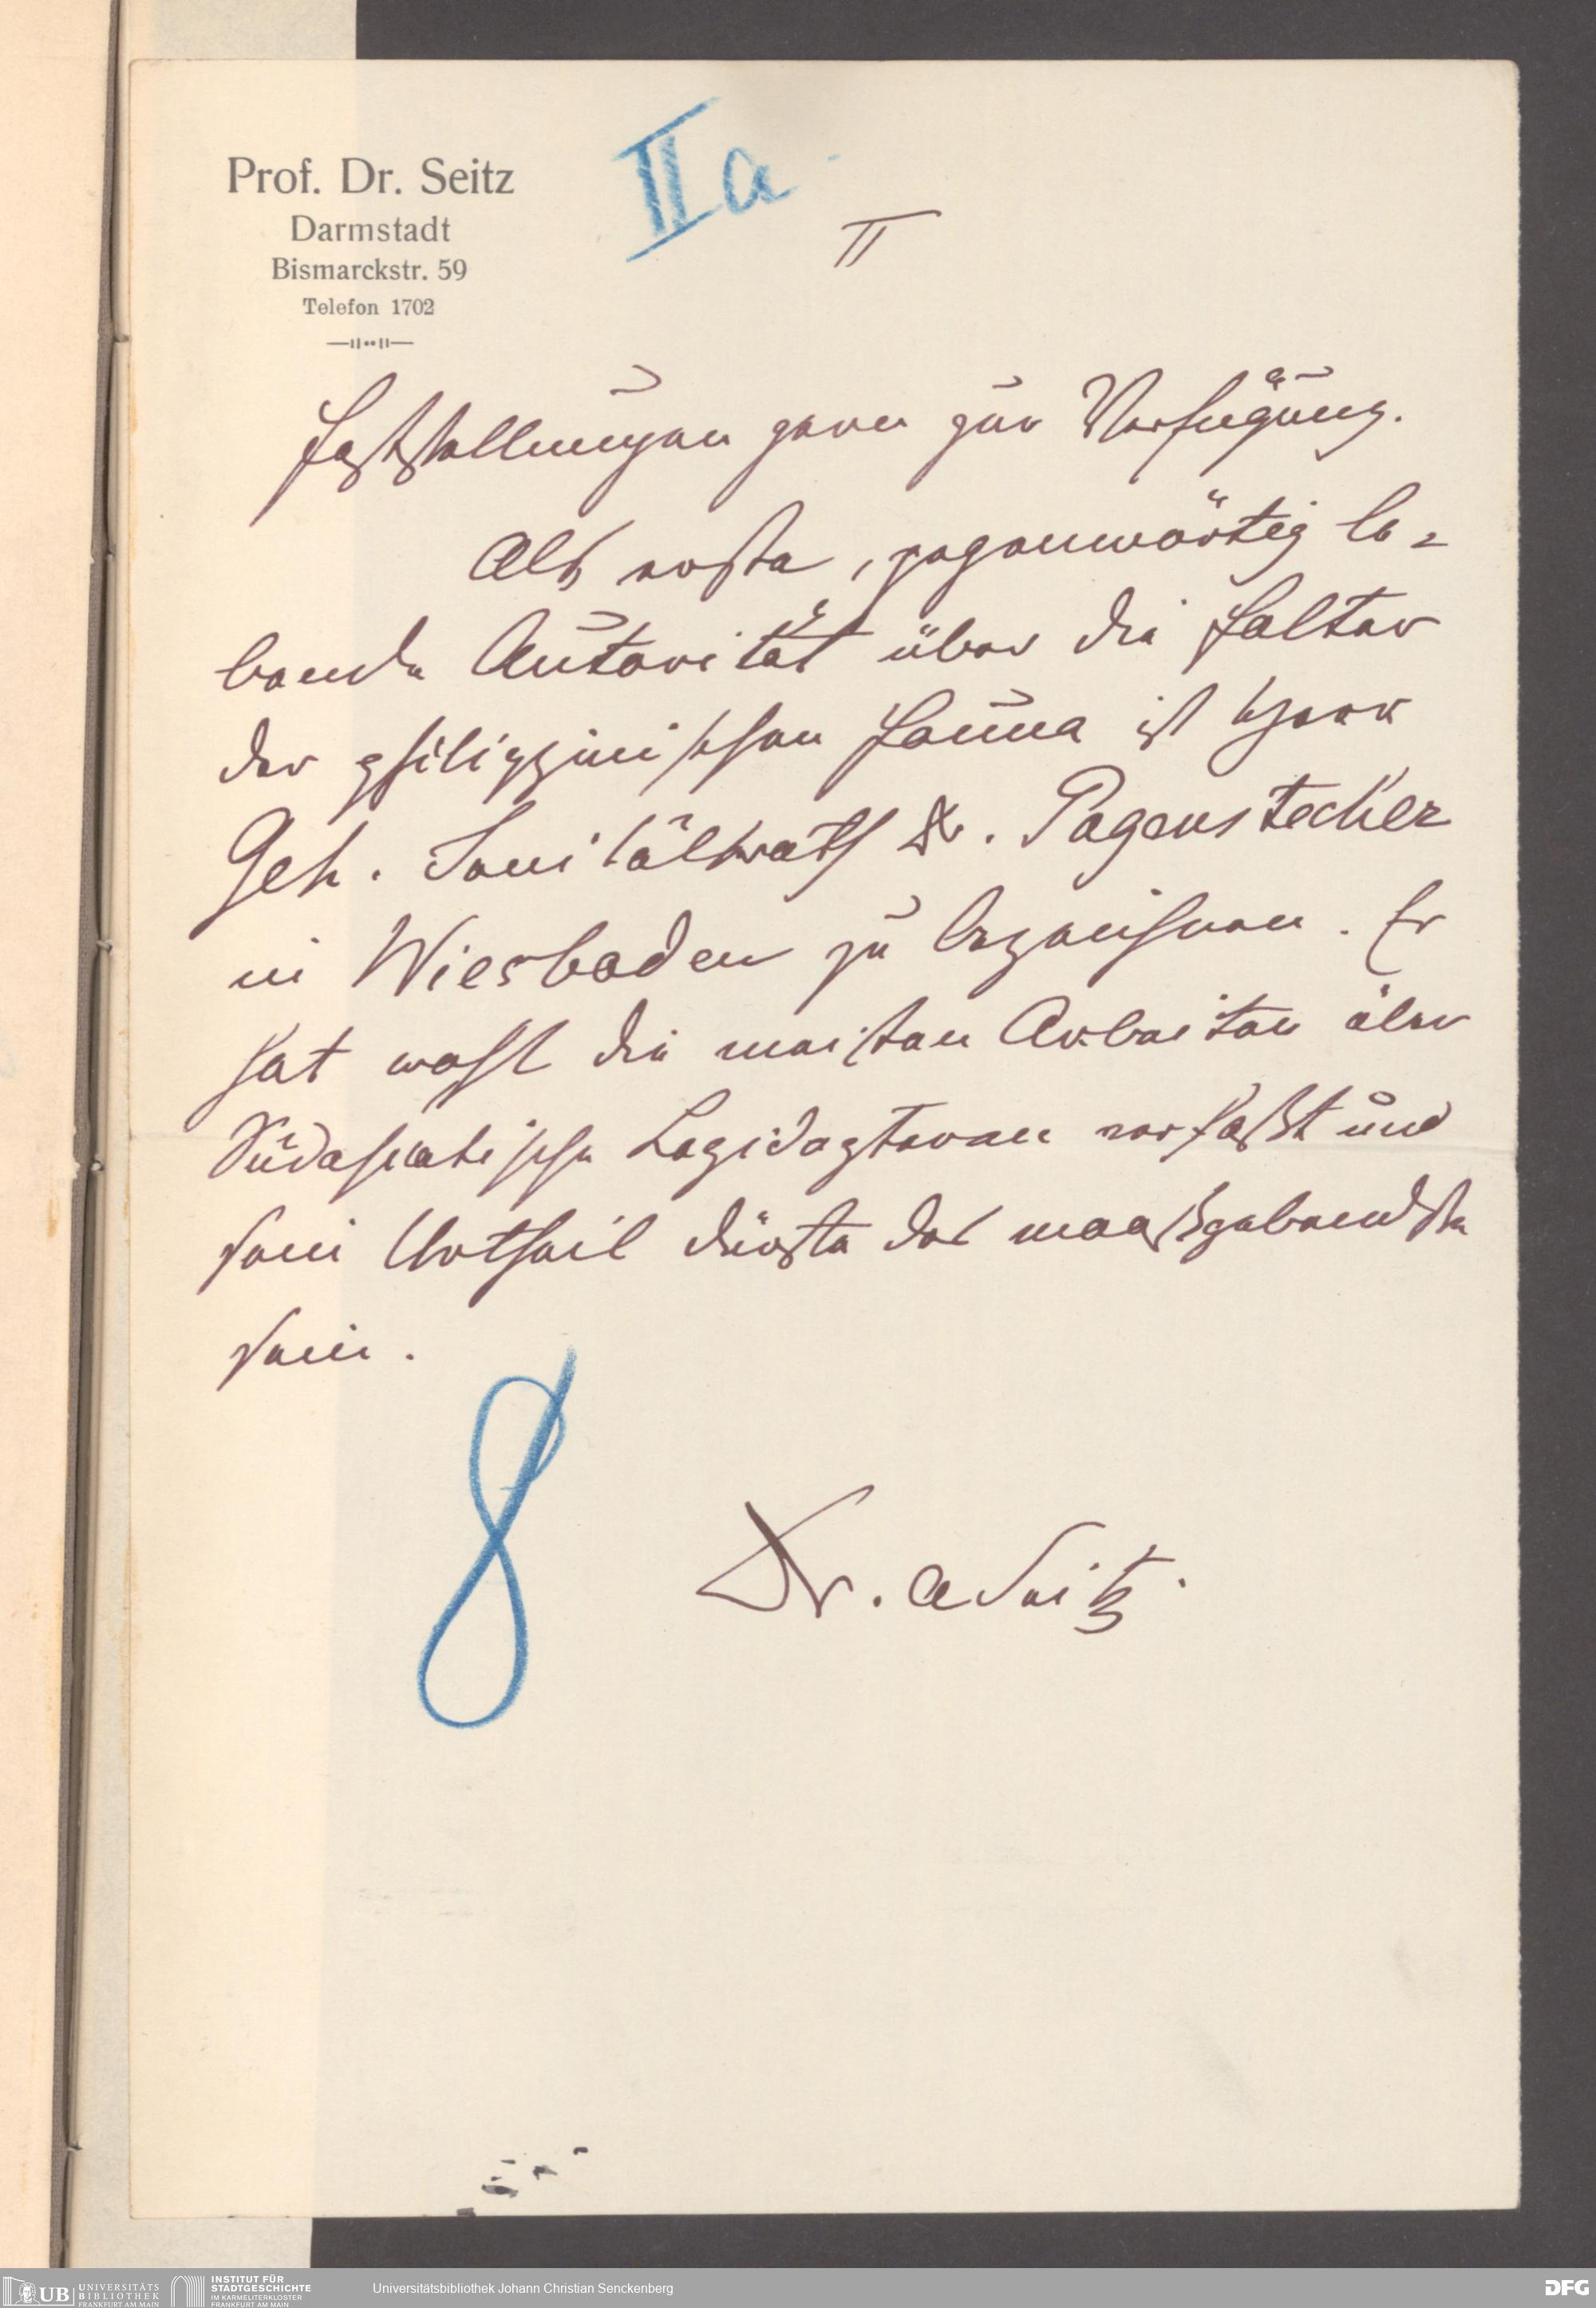 IIa
Prof. Dr. Seitz
Darmstadt
Bismarckstr. 59
Telefon 1702
II
Feststellungen gern zur Verfügung.
Als erste, gegenwärtig le-
bende Autorität über die Falter
der philippinischen Fauna ist Herr
Geh. Sanitätsrath Dr. Pagenstecher
in Wiesbaden zu bezeichnen. Er
hat wohl die meisten Arbeiten über
Südasiatische Lepidopteren verfaßt und
sein Urtheil dürfte das maaßgebendste
sein.
8
Dr. A Seitz.
UB UNIVERSITÄTS
BIBLIOTHEK
FRANKFURT AM MAIN
INSTITUT FÜR
STADTGESCHICHTE
IM KARMELITERKLOSTER
FRANKFURT AM MAIN
Universitätsbibliothek Johann Christian Senckenberg
DFG